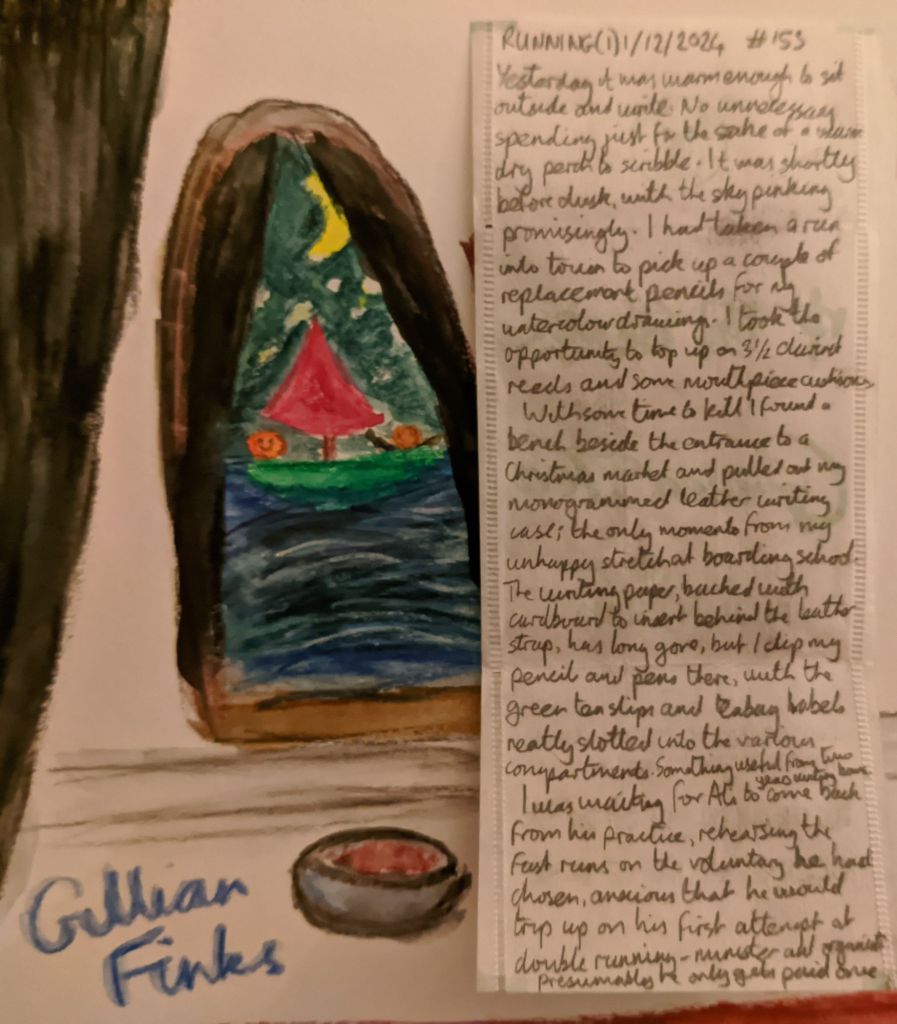 RUNNING(1)1/12/2024 #153
Yesterday it was warm enough to sit
outside and write. No unnecessary
spending just for the sake of a warm
dry perch to scribble. It was shortly
before dusk, with the sky pinking
promisingly. I had taken a run
into town to pick up a couple of
replacement pencils for my
watercolour drawings. I took the
opportunity to top up on 3½ clarinet
reeds and some mouthpiece cushions.
With some time to kill I found a
bench beside the entrance to a
Christmas market and pulled out my
monogrammed leather writing
case; the only momento from my
unhappy stretch at boarding school.
The writing paper, backed with
cardboard to insert behind the leather
strap, has long gone, but I clip my
pencil and pens there, with the
green tea slips and teabag labels
neatly slotted into the various
compartments. Something useful from two
years writing
I was waiting for Ali to come back
from his practice, rehearsing the
fast runs on the voluntary he had
chosen, anxious that he would
trip up on his first attempt at
double running - minister and organist
presumably he only gets paid once
Gillian
Finks